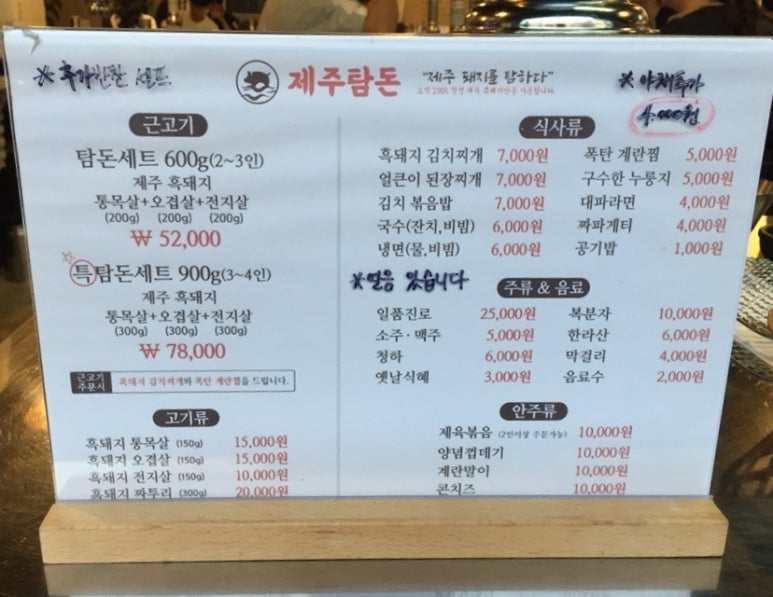 ※ 추가반찬 셀프
제주탐돈
"제주 돼지를 탐하다"
오직 100% 청정 제주 흑돼지만을 사용합니다.
※ 야채추가
1,000원
근고기
탐돈세트 600g(2~3인)
제주 흑돼지
통목살+오겹살+전지살
(200g) (200g) (200g)
₩ 52,000
특탐돈세트 900g(3~4인)
제주 흑돼지
통목살+오겹살+전지살
(300g) (300g) (300g)
₩ 78,000
근고기
주문시
흑돼지 김치찌개와 폭탄 계란찜을 드립니다.
고기류
흑돼지 통목살 (150g) 15,000원
흑돼지 오겹살 (150g) 15,000원
흑돼지 전지살 (150g) 10,000원
흑돼지 짜투리 (300g) 20,000원
식사류
흑돼지 김치찌개 7,000원 폭탄 계란찜 5,000원
얼큰이 된장찌개 7,000원 구수한 누룽지 5,000원
김치 볶음밥 7,000원 대파라면 4,000원
국수(잔치,비빔) 6,000원 짜파게티 4,000원
냉면(물,비빔) 6,000원 공기밥 1,000원
※얼음 있습니다
주류 & 음료
일품진로 25,000원 복분자 10,000원
소주·맥주 5,000원 한라산 6,000원
청하 6,000원 막걸리 4,000원
옛날식혜 3,000원 음료수 2,000원
안주류
제육볶음 (2인이상 주문가능) 10,000원
양념껍데기 10,000원
계란말이 10,000원
콘치즈 10,000원